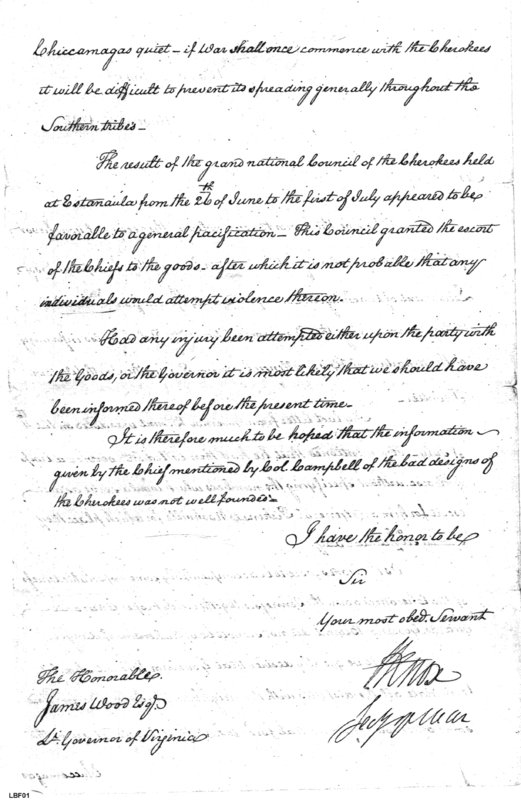 Chiccamagas quiet – if War shall once commence with the Cherokees
it will be difficult to prevent its spreading generally throughout the
Southern tribes –
The result of the grand national Council of the Cherokees held
at Estanaula from the 26th of June to the first of July appeared to be
favorable to a general pacification – This Council granted the escort
of the Chiefs to the goods – after which it is not probable that any
individuals would attempt violence thereon.
Had any injury been attempted either upon the party with
the Goods, or the Governor it is most likely that we should have
been informed thereof before the present time –
It is therefore much to be hoped that the information
given by the Chief mentioned by Col. Campbell of the bad designs of
the Cherokees was not well founded –
I have the honor to be
Sir
Your most obed. Servant
HKnox
Secy of War
The Honorable
James Wood Esqr.
Lt. Governor of Virginia
LBF01